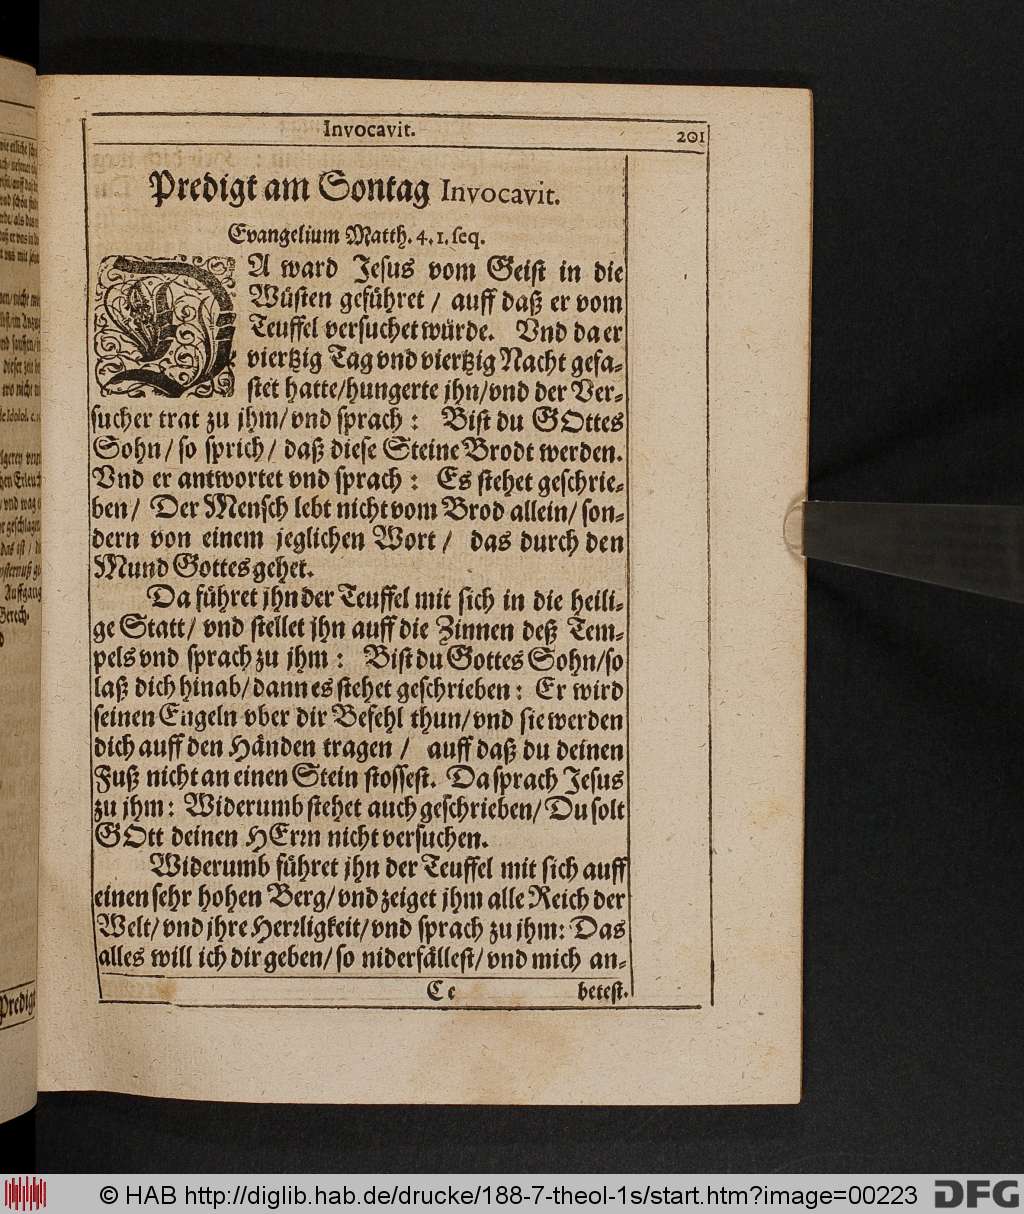 Invocavit. 201
Predigt am Sontag Invocavit.
Evangelium Matth. 4. 1. seq.
DA ward Jesus vom Geist in die
Wüsten geführet / auff daß er vom
Teuffel versuchet würde. Vnd da er
viertzig Tag vnd viertzig Nacht gefa-
stet hatte/hungerte jhn/vnd der Ver-
sucher trat zu jhm/ vnd sprach : Bist du GOttes
Sohn/ so sprich/ daß diese Steine Brodt werden.
Vnd er antwortet vnd sprach : Es stehet geschrie-
ben/ Der Mensch lebt nicht vom Brod allein/ son-
dern von einem jeglichen Wort / das durch den
Mund Gottes gehet.
Da führet jhn der Teuffel mit sich in die heili-
ge Statt/ vnd stellet jhn auff die Zinnen deß Tem-
pels vnd sprach zu jhm : Bist du Gottes Sohn/so
laß dich hinab/ dann es stehet geschrieben : Er wird
seinen Engeln vber dir Befehl thun/ vnd sie werden
dich auff den Händen tragen / auff daß du deinen
Fuß nicht an einen Stein stossest. Da sprach Jesus
zu jhm : Widerumb stehet auch geschrieben/ Du solt
GOtt deinen HErrn nicht versuchen.
Widerumb führet jhn der Teuffel mit sich auff
einen sehr hohen Berg/ vnd zeiget jhm alle Reich der
Welt/ vnd jhre Herrligkeit/ vnd sprach zu jhm: Das
alles will ich dir geben/ so niderfällest/ vnd mich an-
Cc betest.
Predigt
© HAB http://diglib.hab.de/drucke/188-7-theol-1s/start.htm?image=00223 DFG